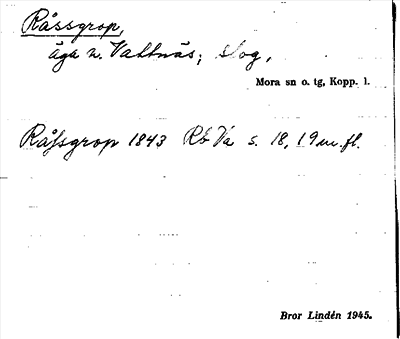 Råssgrop,
äga n. Vattnäs; skog,
Mora sn o. tg, Kopp. l.
Råssgrop 1843 Rb Va s. 18, 19 m. fl.
Bror Lindén 1945.